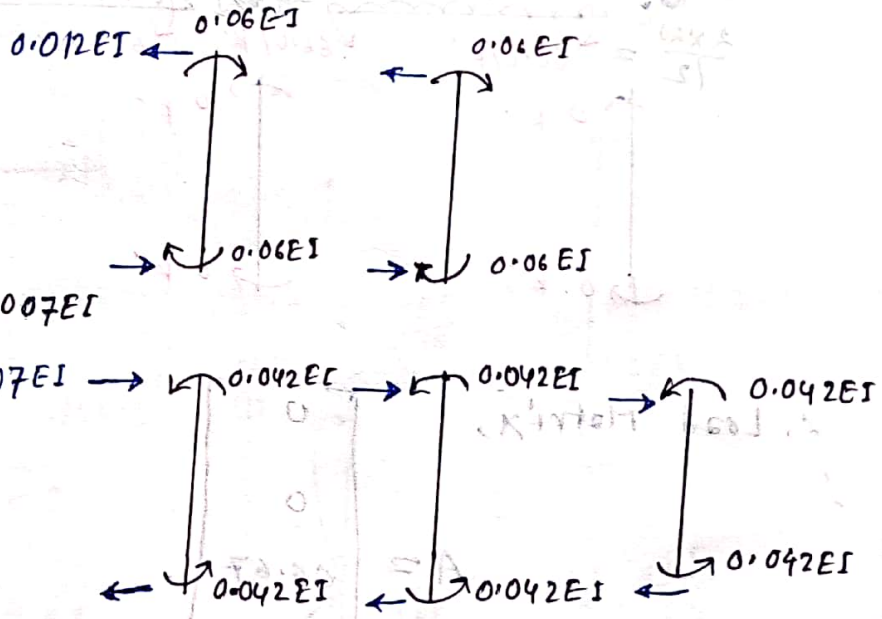 0.06EI
0.012EI
0.06EI
0.06EI
0.06EI
007EI
7EI
0.042EI
0.042EI
0.042EI
0.042EI
0.042EI
0.042EI